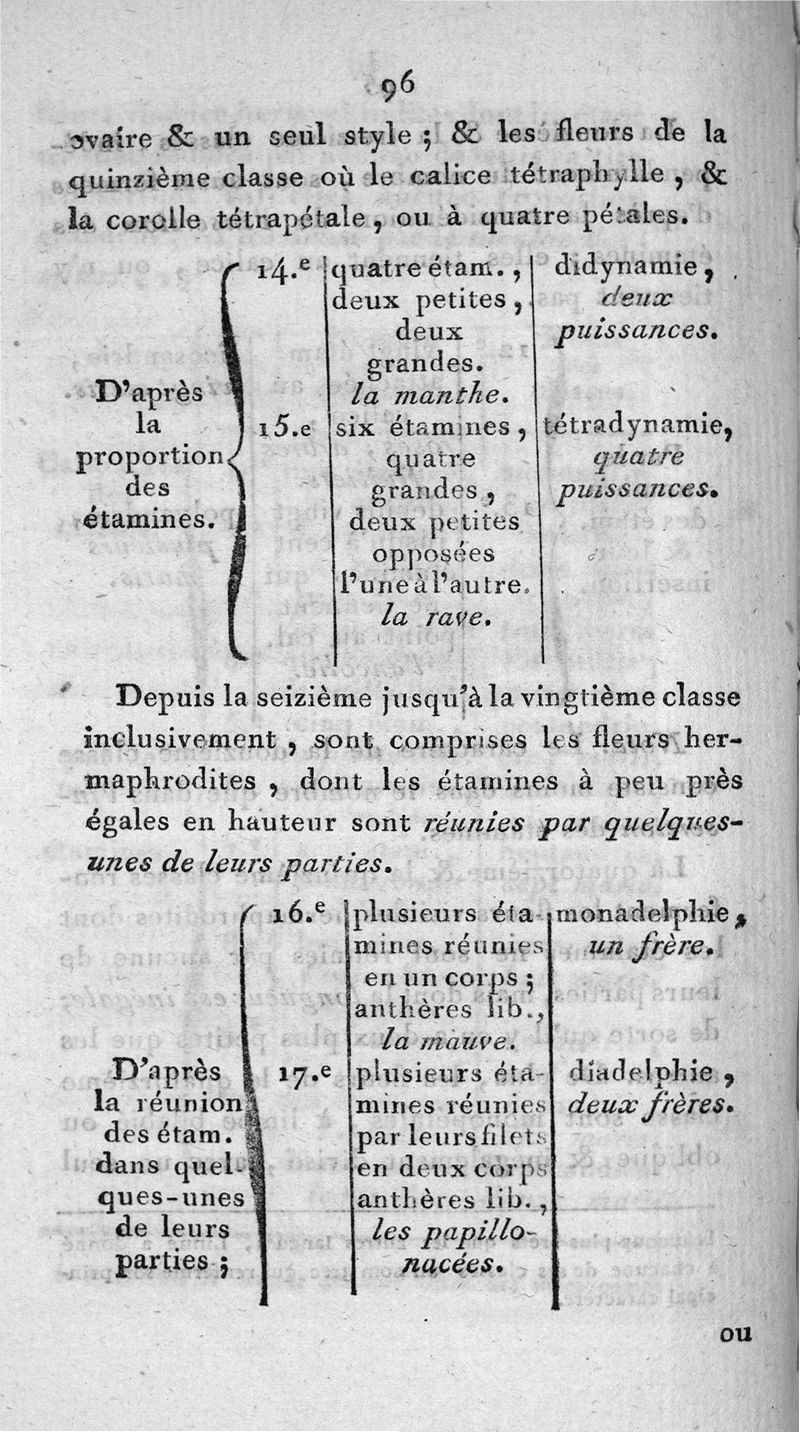 96
ovaire & un seul style ; & les fleurs de la
quinzième classe où le calice tétraphylle , &
la corolle tétrapétale , ou à quatre pétales.
D’après
la
proportion
des
étamines.
14.e
quatre étam. ,
deux petites ,
deux
grandes.
la manthe.
didynamie ,
deux
puissances.
15.e
six étamines ,
quatre
grandes ,
deux petites
opposées
l’une à l’autre.
la rave.
tétradynamie,
quatre
puissances.
Depuis la seizième jusqu’à la vingtième classe
inclusivement , sont comprises les fleurs her-
maphrodites , dont les étamines à peu près
égales en hauteur sont réunies par quelques-
unes de leurs parties.
D’après
la réunion
des étam.
dans quel-
ques-unes
de leurs
parties ;
16.e
plusieurs éta-
mines réunies
en un corps ;
anthères lib.,
la mauve.
monadelphie,
un frère.
17.e
plusieurs éta-
mines réunies
par leurs filets
en deux corps
anthères lib. ,
les papillo-
nacées.
diadelphie ,
deux frères.
ou